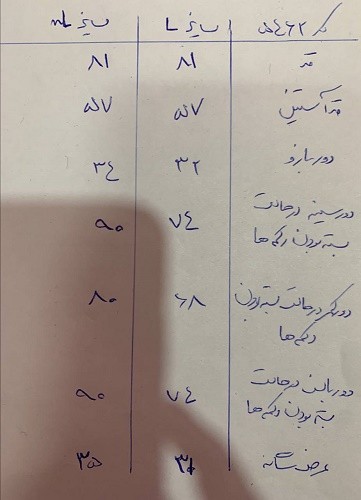 کد ۵۴۶۲ سایز L سایز XL
قد ۸۱ ۸۱
قد آستین ۵۷ ۵۷
دور بازو ۳۲ ۳۴
دور سینه در حالت ۷۴ ۹۰
بسته بودن دکمه ها
دور کمر در حالت بسته بودن ۶۸ ۸۰
دکمه ها
دور پایین در حالت ۷۴ ۹۰
بسته بودن دکمه ها
عرض شانه ۳۵